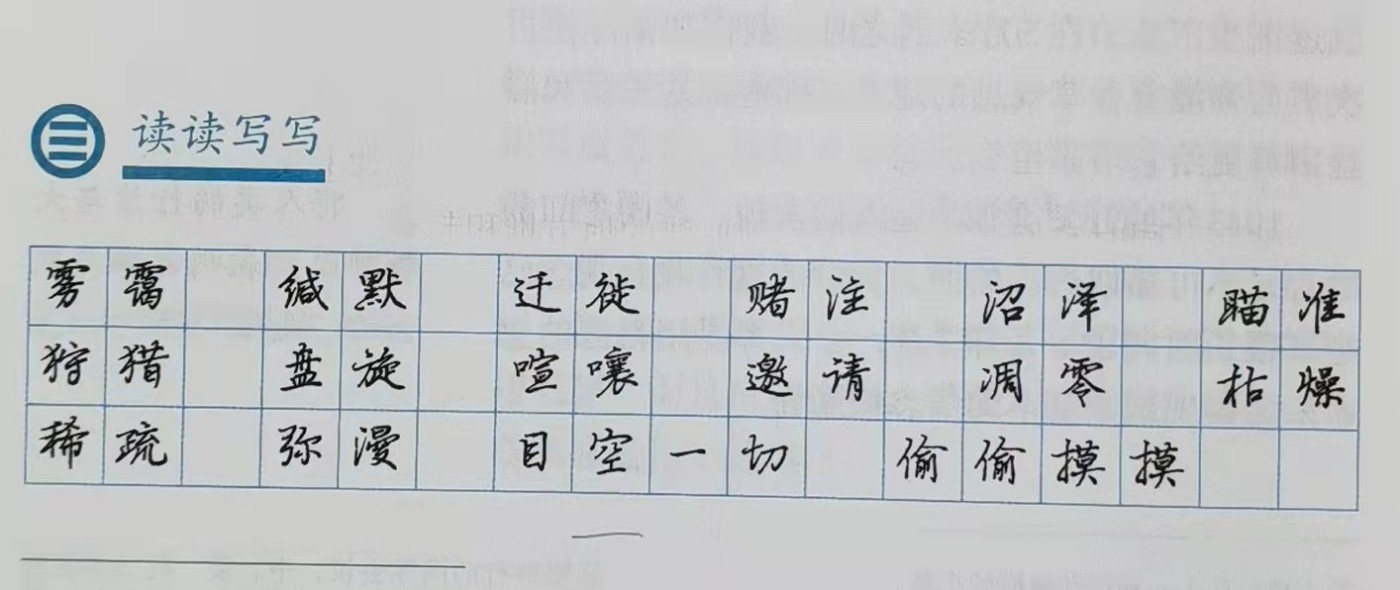 读读写写
雾霭 缄默 迁徙 赌注 沼泽 瞄准
狩猎 盘旋 喧嚷 邀请 凋零 枯燥
稀疏 弥漫 目空一切 偷偷摸摸